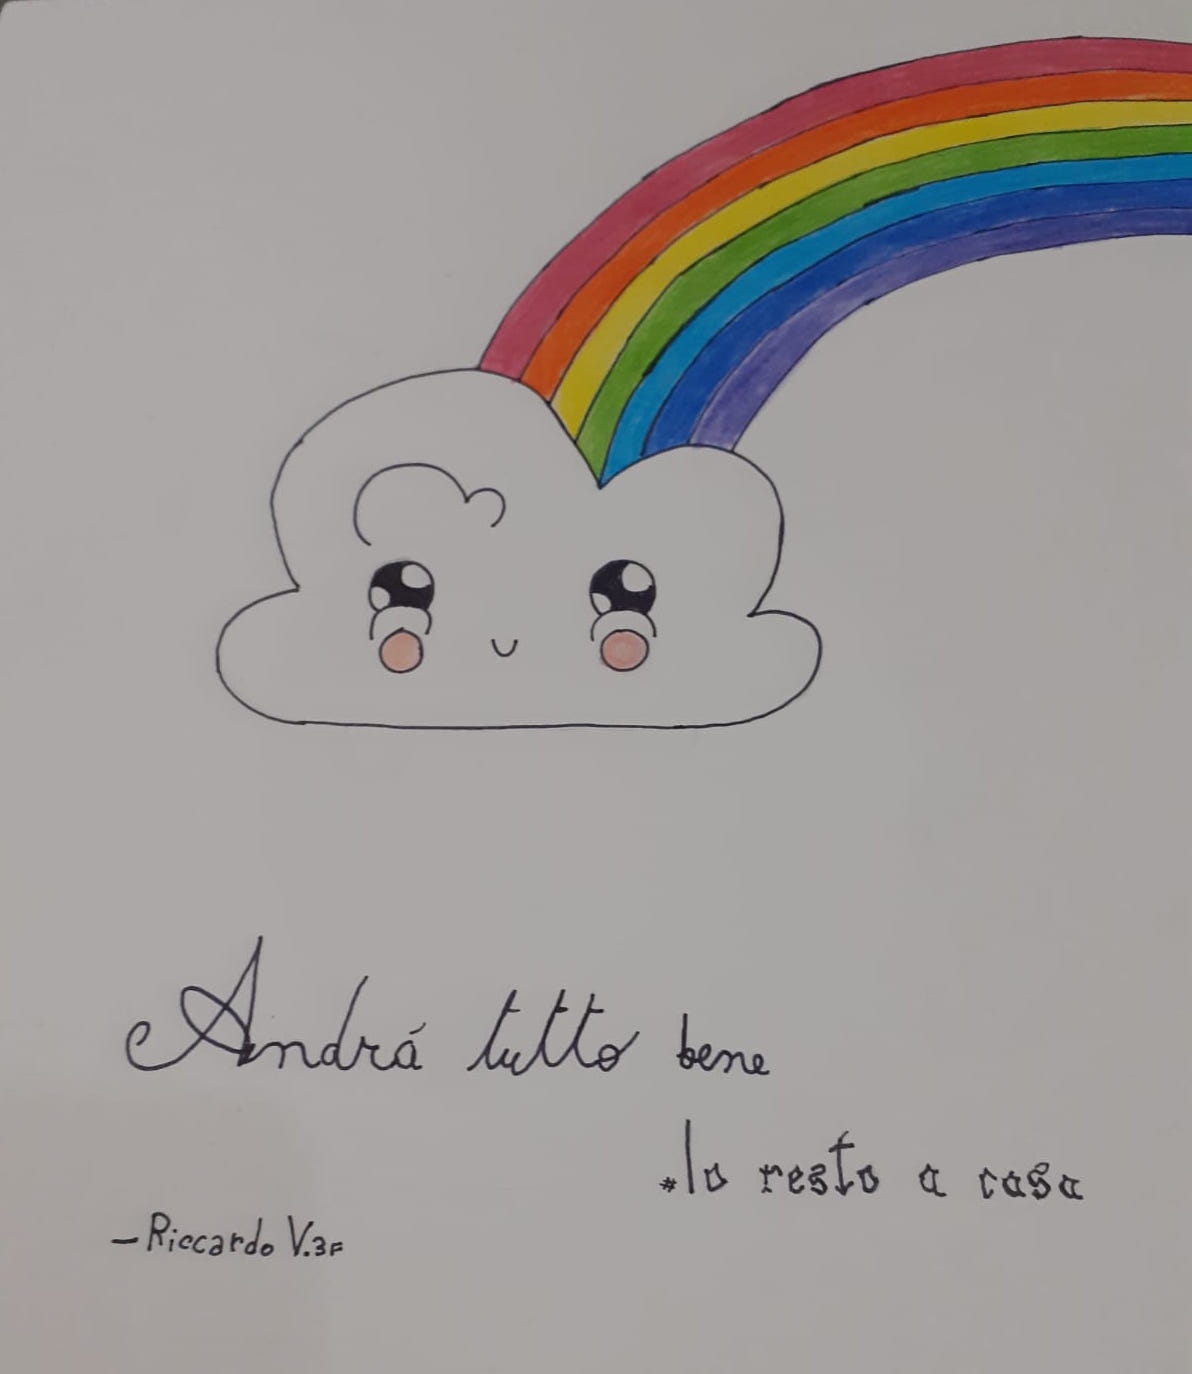 Andrá tutto bene
#Io resto a casa
-Riccardo V.3F